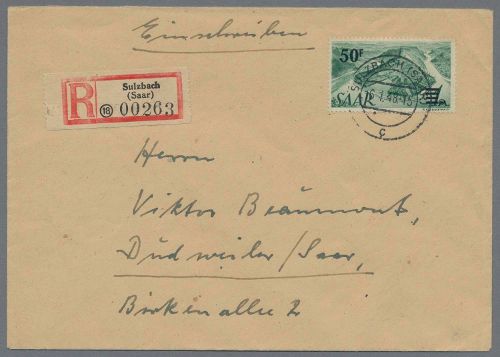 Einschreiben
50F
SAAR
SULZBACH (SAAR)
6.1.48-15
c
R
Sulzbach
(Saar)
18 00263
Herrn
Viktor Beaumont,
Dudweiler/Saar,
Birkenallee 2